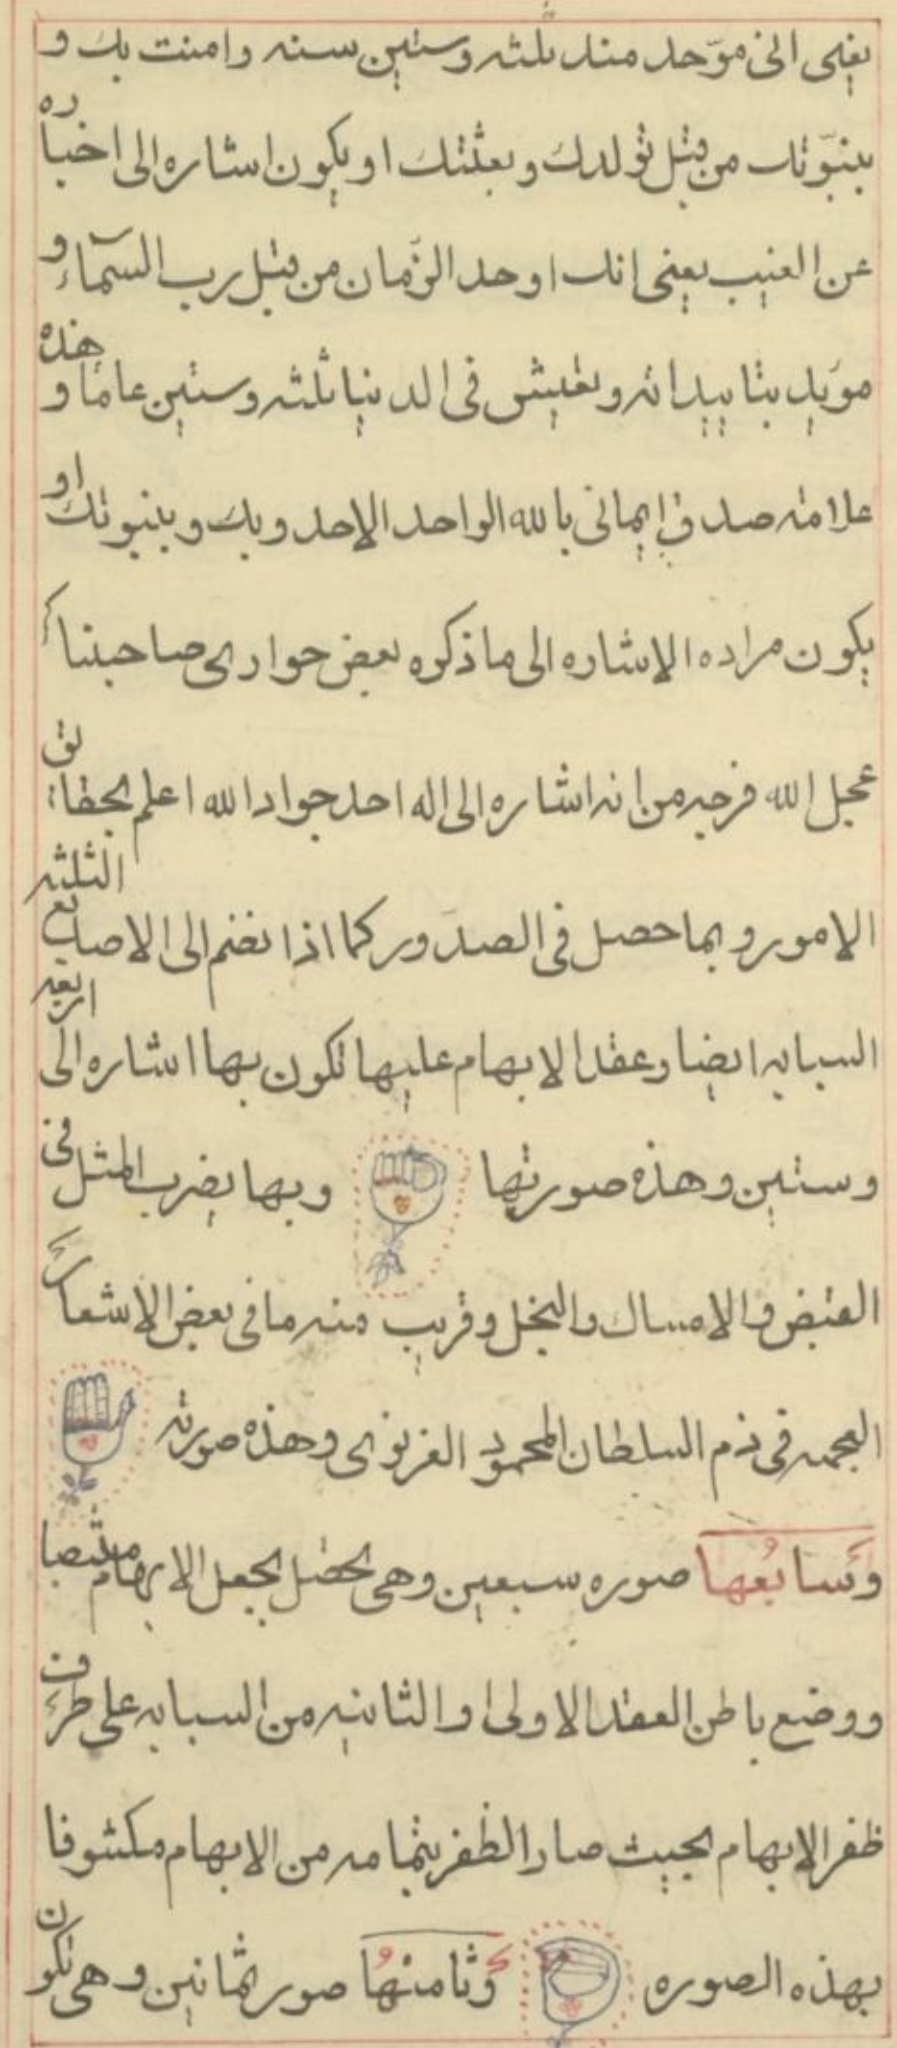 يعنى انى موّحد منذ ثلثه وستين سنه وامنت بك و
بنبوّتك من قبل تولدك وبعثتك او يكون اشاره الى اخباره
عن الغيب يعنى انك اوحد الزّمان من قبل رب السّماء و
مويد بتاييداته وتعيش فى الدنيا ثلثه وستين عاما وهذه
علامته صدق ايمانى بالله الواحد الاحد وبك وبنبوتك او
يكون مراده الاشاره الى ما ذكره بعض حوارى صاحبنا
عجل الله فرجه من انه اشاره الى اله احد جواد الله اعلم بحقائق
الامور وبما حصل فى الصدور كما اذا نضم الى الاصابع الثلثه
السبابه ايضا وعقد الابهام عليها تكون بها اشاره الى اربعه
وستين وهذه صورتها وبها يضرب المثل فى
القبض والامساك والبخل وقريب منه ما فى بعض الاشعار
العجميه فى ذم السلطان المحمود الغزنوى وهذه صورته
وَسابعُها صوره سبعين وهى تحصل بجعل الابهام منتصبا
ووضع باطن العقد الاولى او الثانيه من السبابه على طرف
ظفر الابهام بحيث صار الظفر بتمامه من الابهام مكشوفا
بهذه الصوره وثامنهُا صور ثمانين وهى تكون